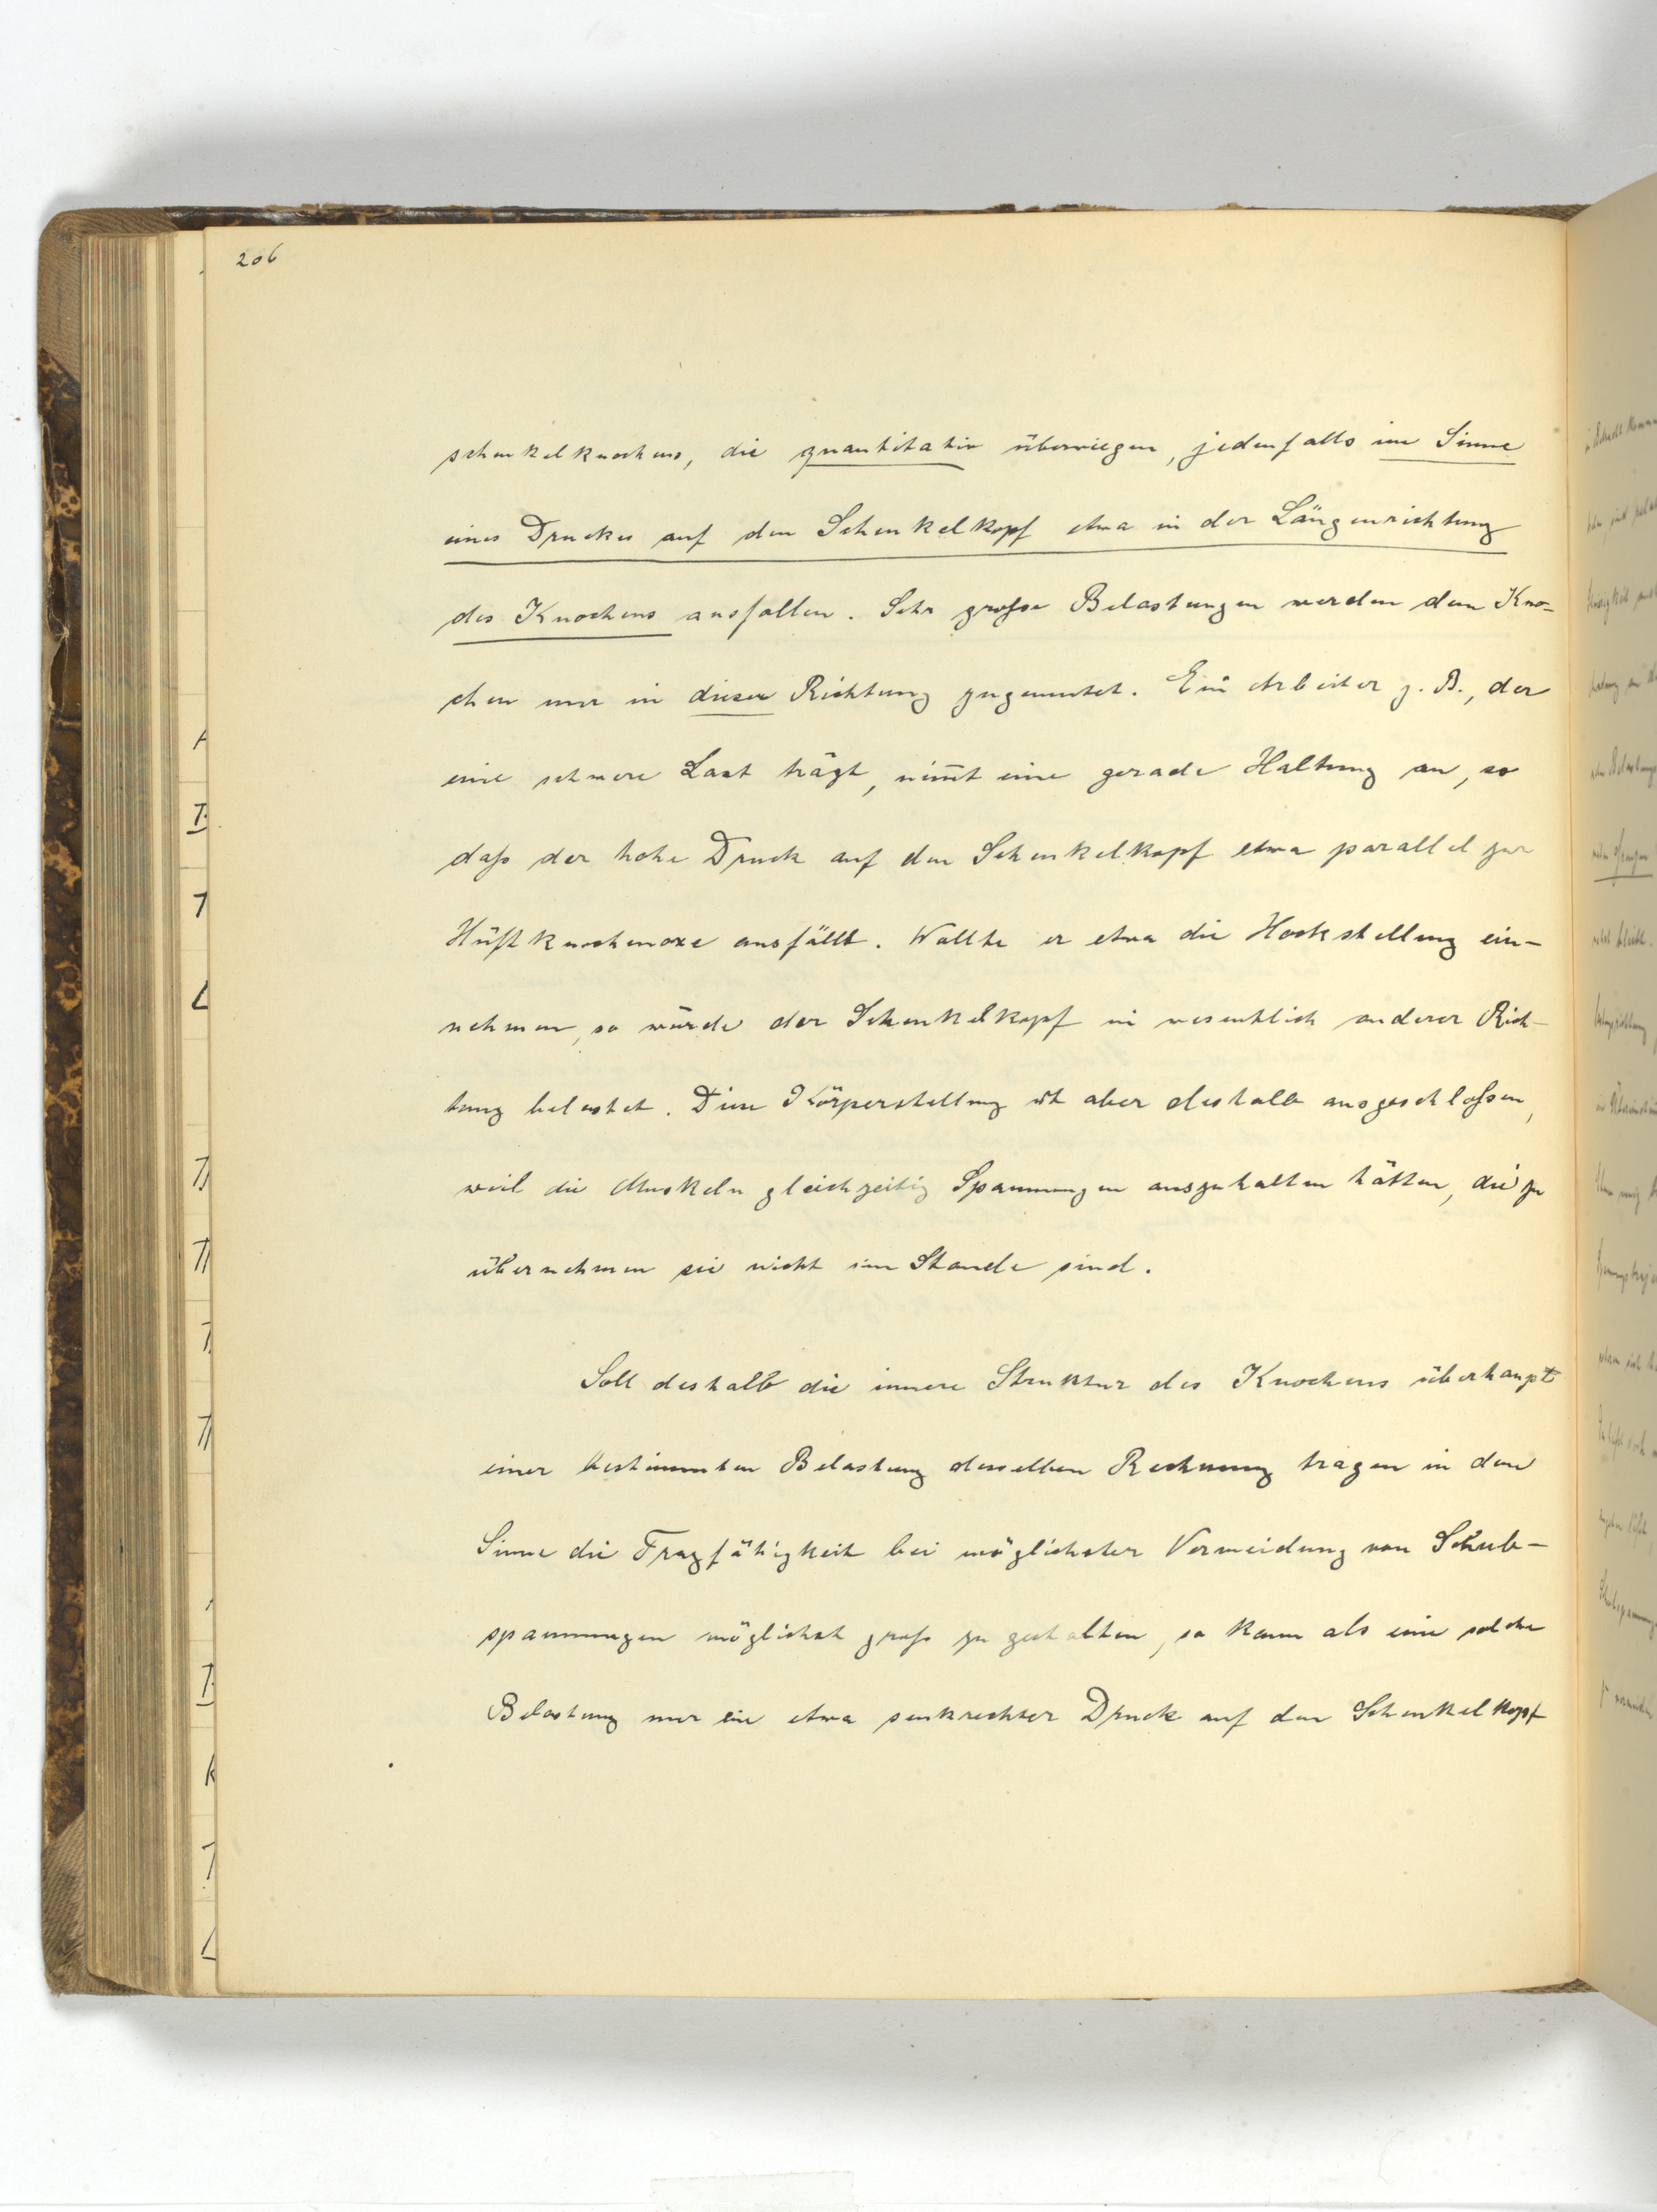 206
schenkelknochens, die quantitativ überwiegen, jedenfalls im Sinne
eines Druckes auf den Schenkelkopf etwa in der Längenrichtung
des Knochens ausfallen. Sehr große Belastungen werden dem Kno-
chen nur in dieser Richtung zugemutet. Ein Arbeiter z. B., der
eine schwere Last trägt, nim̅t eine gerade Haltung an, so
daß der hohe Druck auf den Schenkelkopf etwa parallel zur
Hüftknochenaxe ausfällt. Wollte er etwa die Hockstellung ein-
nehmen, so würde der Schenkelkopf in wesentlich anderer Rich-
tung belastet. Diese Körperstellung ist aber deshalb ausgeschloßen,
weil die Muskeln gleichzeitig Spannungen auszuhalten hätten, die zu
übernehmen sie nicht im Stande sind.
Soll deshalb die innere Struktur des Knochens überhaupt
einer bestimmten Belastung desselben Rechnung tragen in dem
Sinne die Tragfähigkeit bei möglichster Vermeidung von Schub-
spannungen möglichst groß zu gestalten, so kann als eine solche
Belastung nur ein etwa senkrechter Druck auf den Schenkelkopf